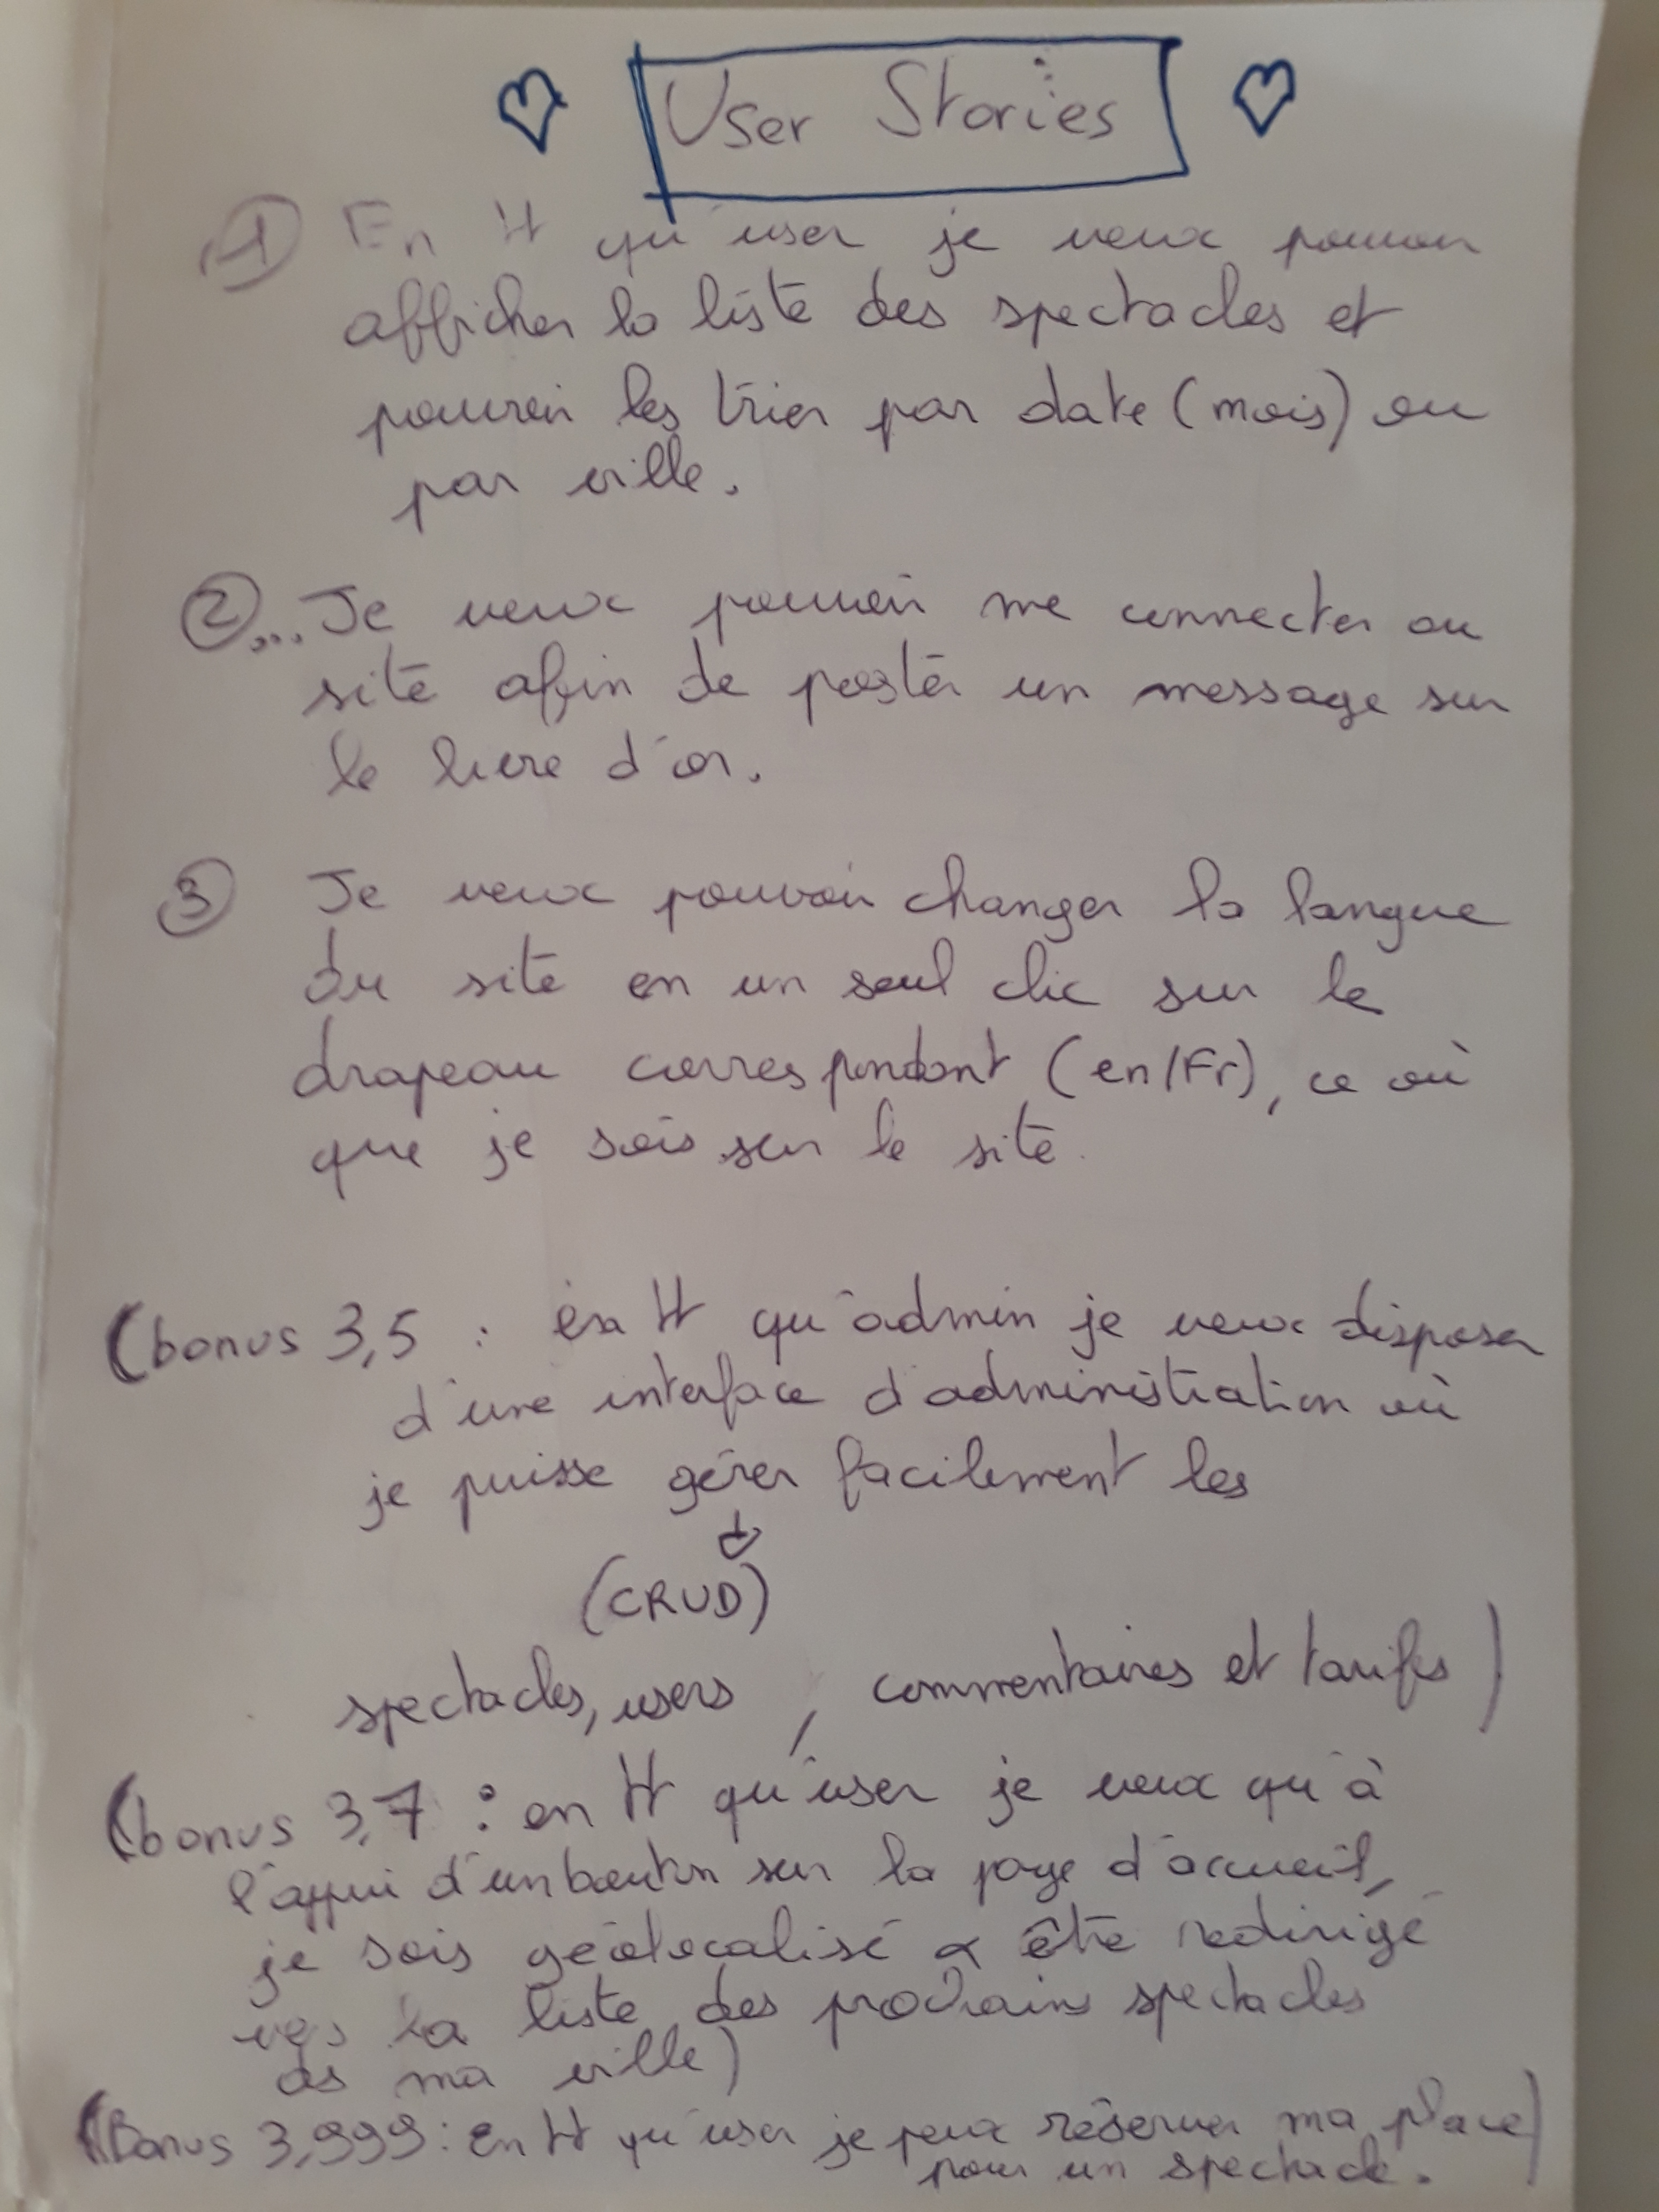 User Stories
① En tt qu'user je veux pouvoir
afficher la liste des spectacles et
pouvoir les trier par date (mois) ou
par ville.
②... Je veux pouvoir me connecter au
site afin de poster un message sur
le livre d'or.
③ Je veux pouvoir changer la langue
du site en un seul clic sur le
drapeau correspondant (en/Fr), ce où
que je sois sur le site.
(bonus 3,5 : en tt qu'admin je veux disposer
d'une interface d'administration où
je puisse gérer facilement les
(CRUD)
spectacles, users, commentaires et tarifs)
(bonus 3,7 : en tt qu'user je veux qu'à
l'appui d'un bouton sur la page d'accueil,
je sois géolocalisé & être redirigé
vers la liste des prochains spectacles
ds ma ville)
(Bonus 3,999 : En tt qu'user je peux réserver ma place)
pour un spectacle.